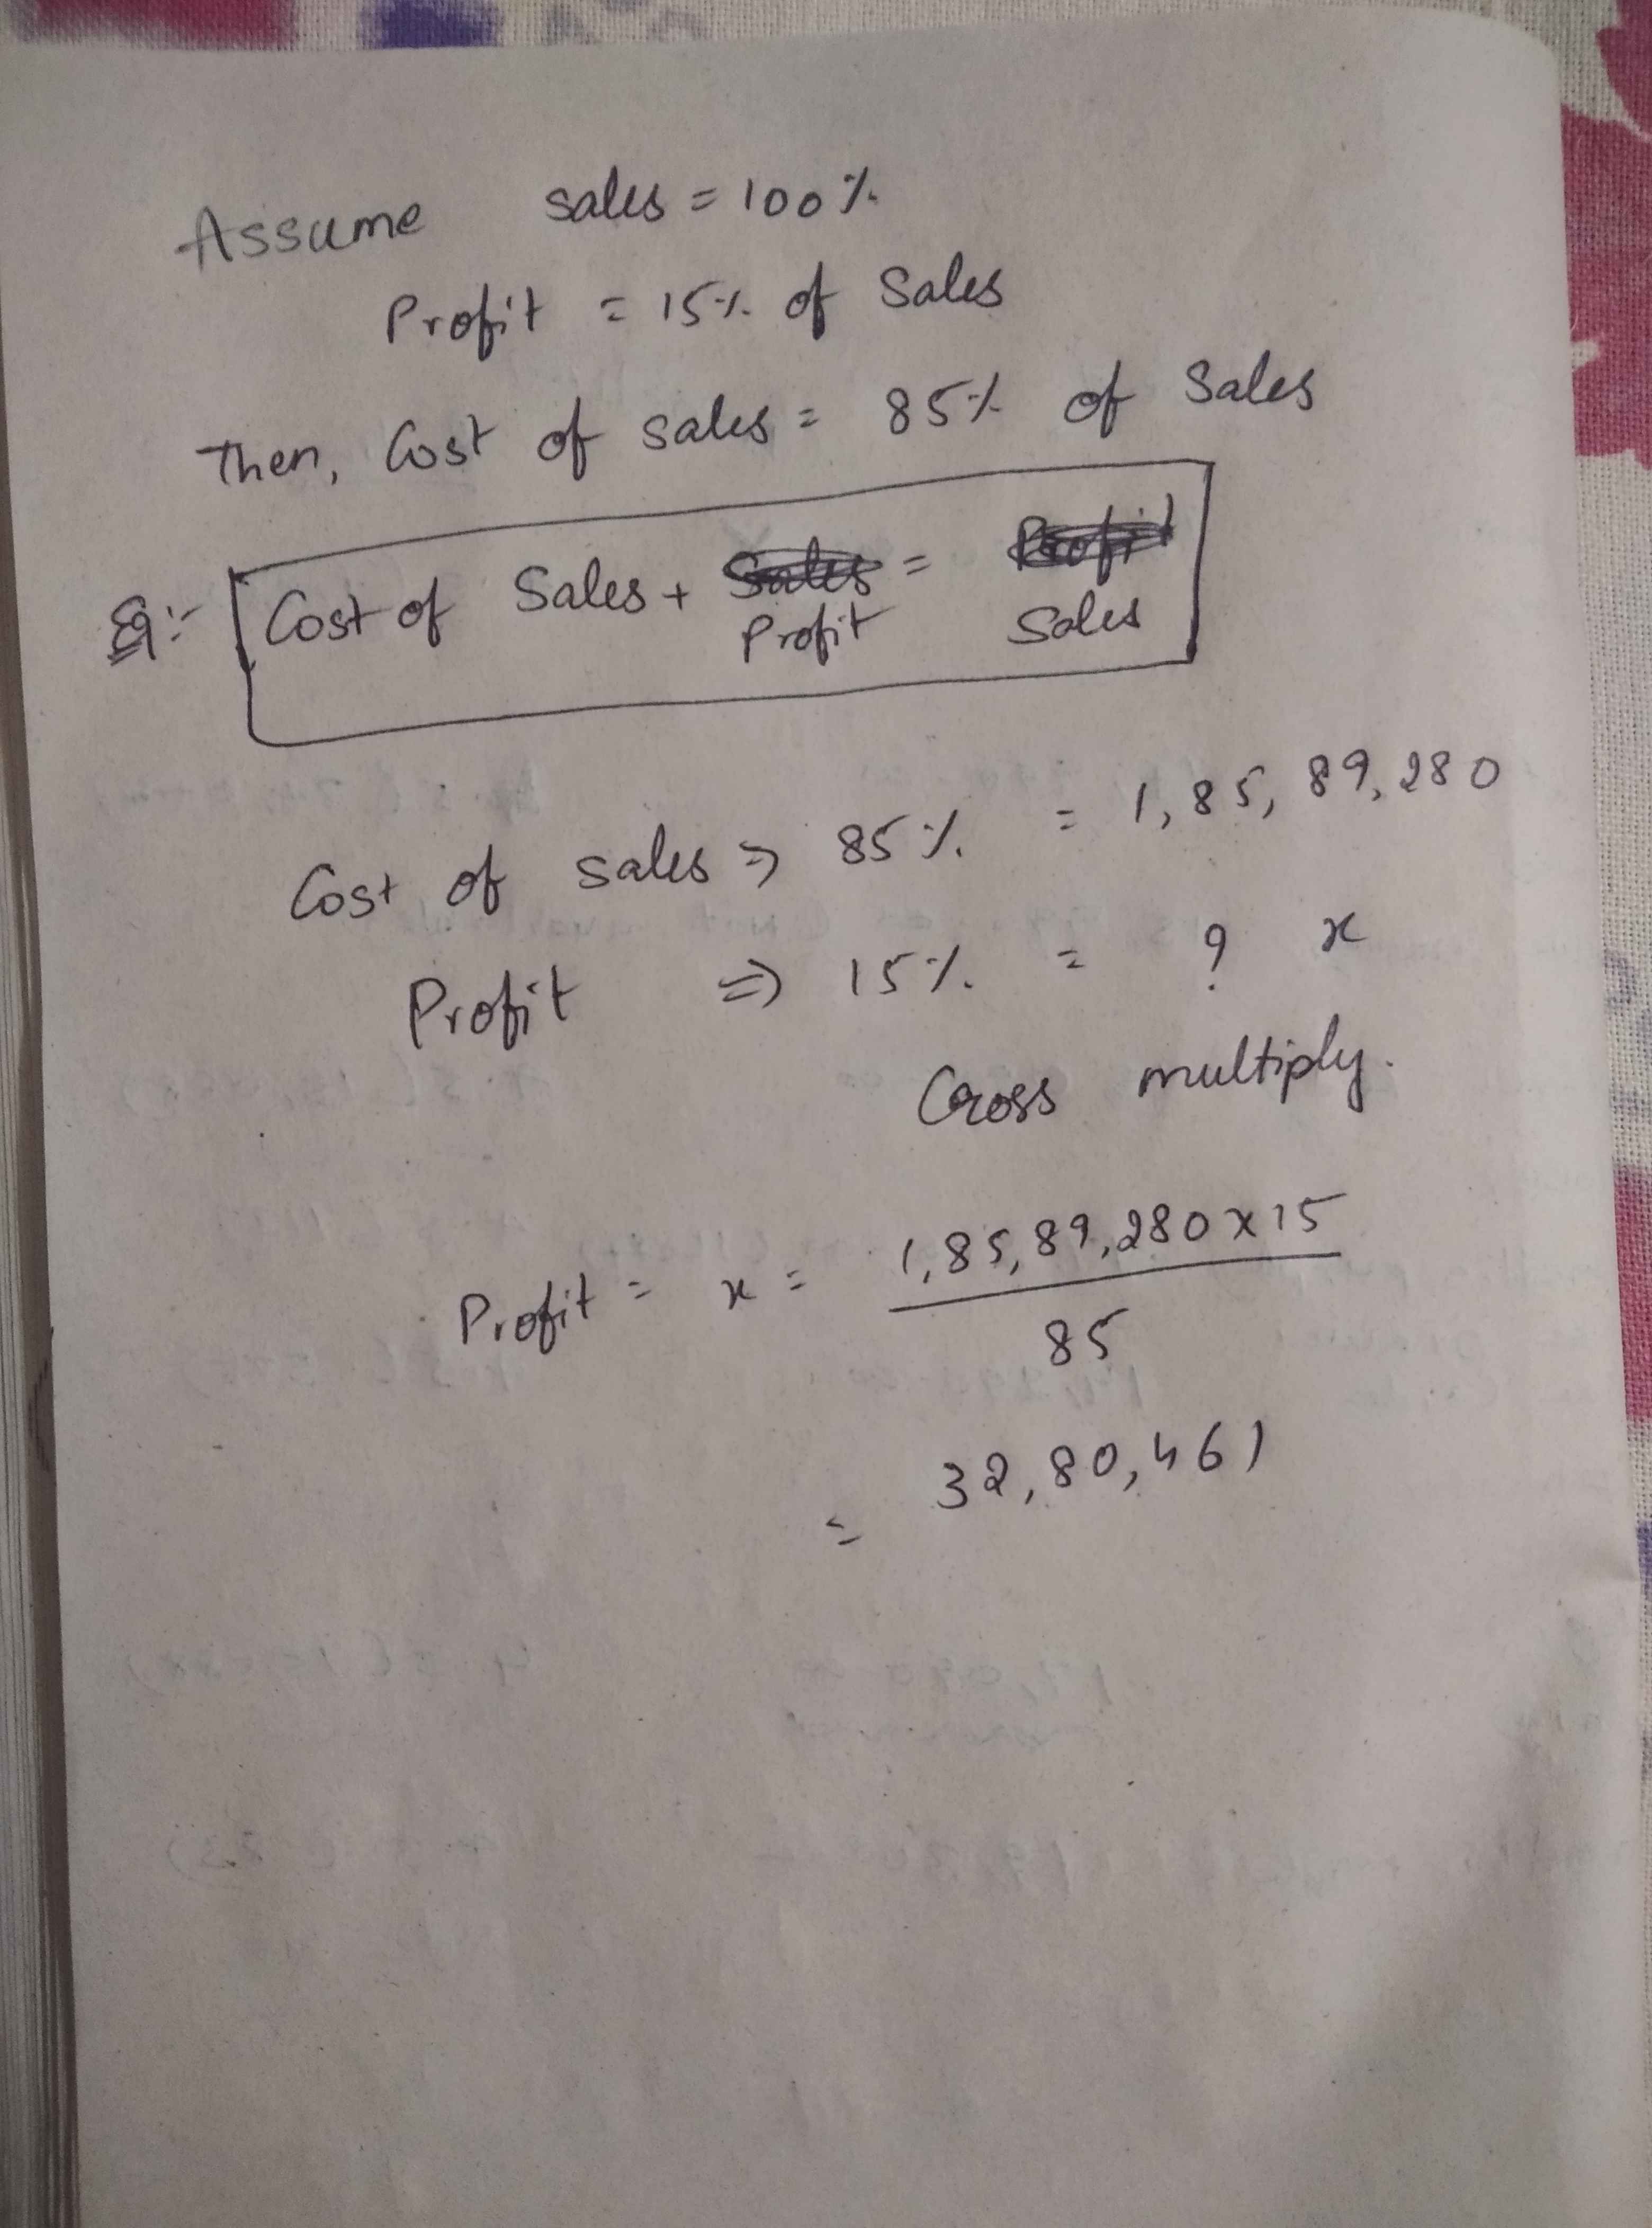 Assume sales = 100%
Profit = 15% of Sales
Then, Cost of sales = 85% of Sales
Eq:- Cost of Sales + Profit = Sales
Cost of sales => 85% = 1,85,89,280
Profit => 15% = ? x
Cross multiply.
Profit = x = 1,85,89,280 x 15
85
= 32,80,461